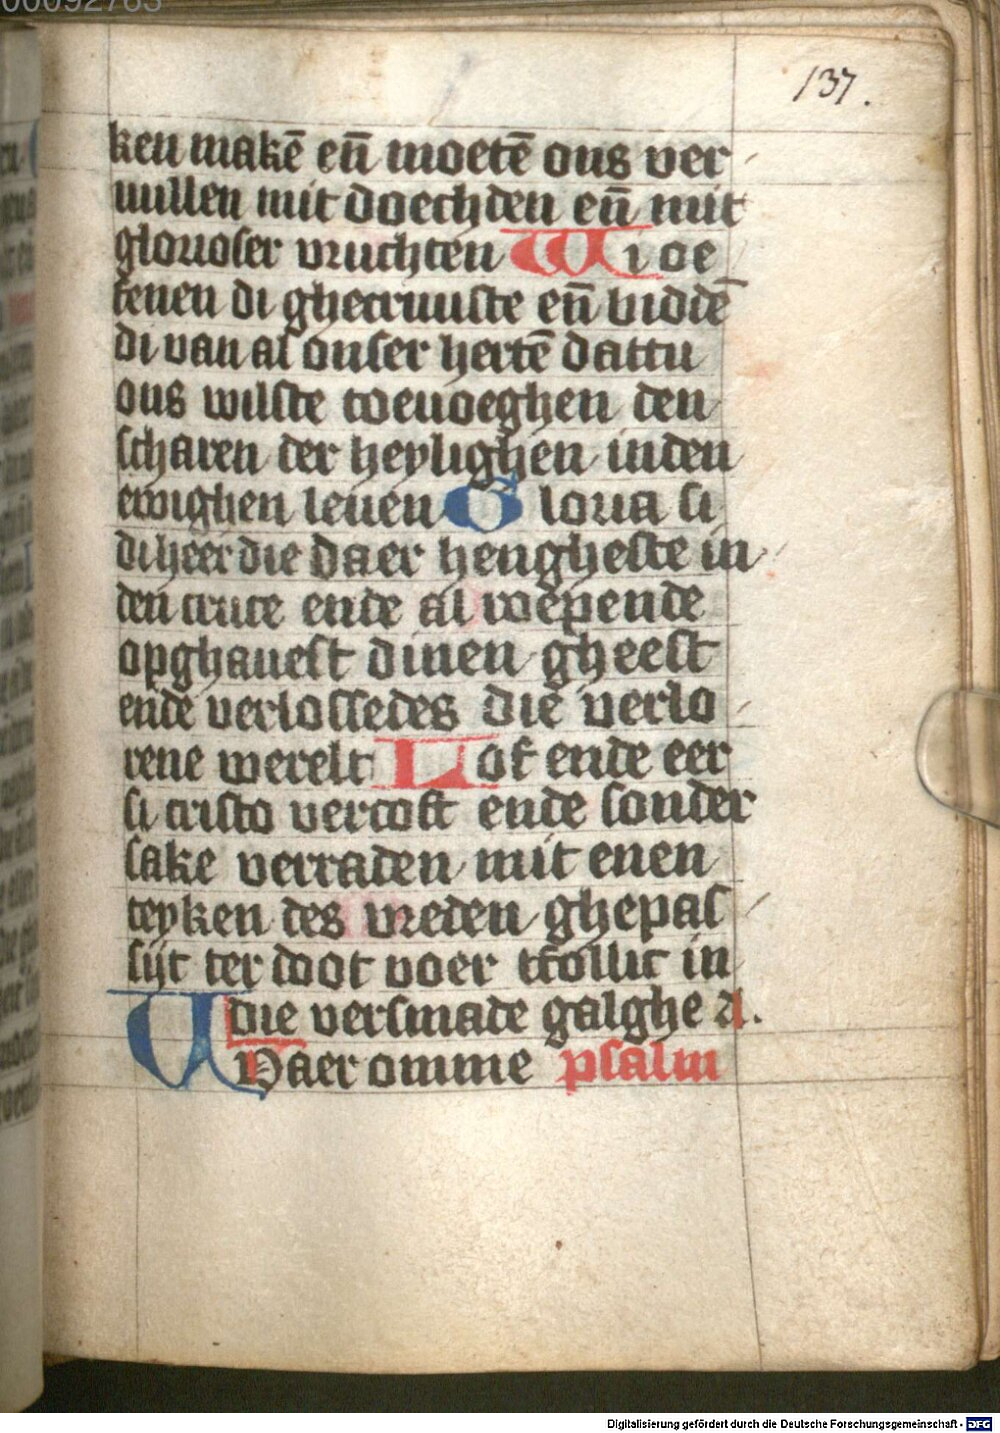 00092763
137.
ken makē en̄ moetē ons ver
uullen mit doechden en̄ mit
glorioser vruchten Wi oe
fenen di ghecruuste en̄ biddē
di van al onser hertē dattu
ons wilste toeuoeghen den
scharen der heylighen inden
ewighen leuen Gloria si
di heer die daer hengheste in
den cruce ende al roepende
opghauest dinen gheest
ende verlossedes die verlo
rene werelt Lof ende eer
si cristo vercoft ende sonder
sake verraden mit enen
teyken des vreden ghepas
sijt ter doot voer tfollic in
die versmade galghe a.
Waer omme psalm
Digitalisierung gefördert durch die Deutsche Forschungsgemeinschaft - DFG